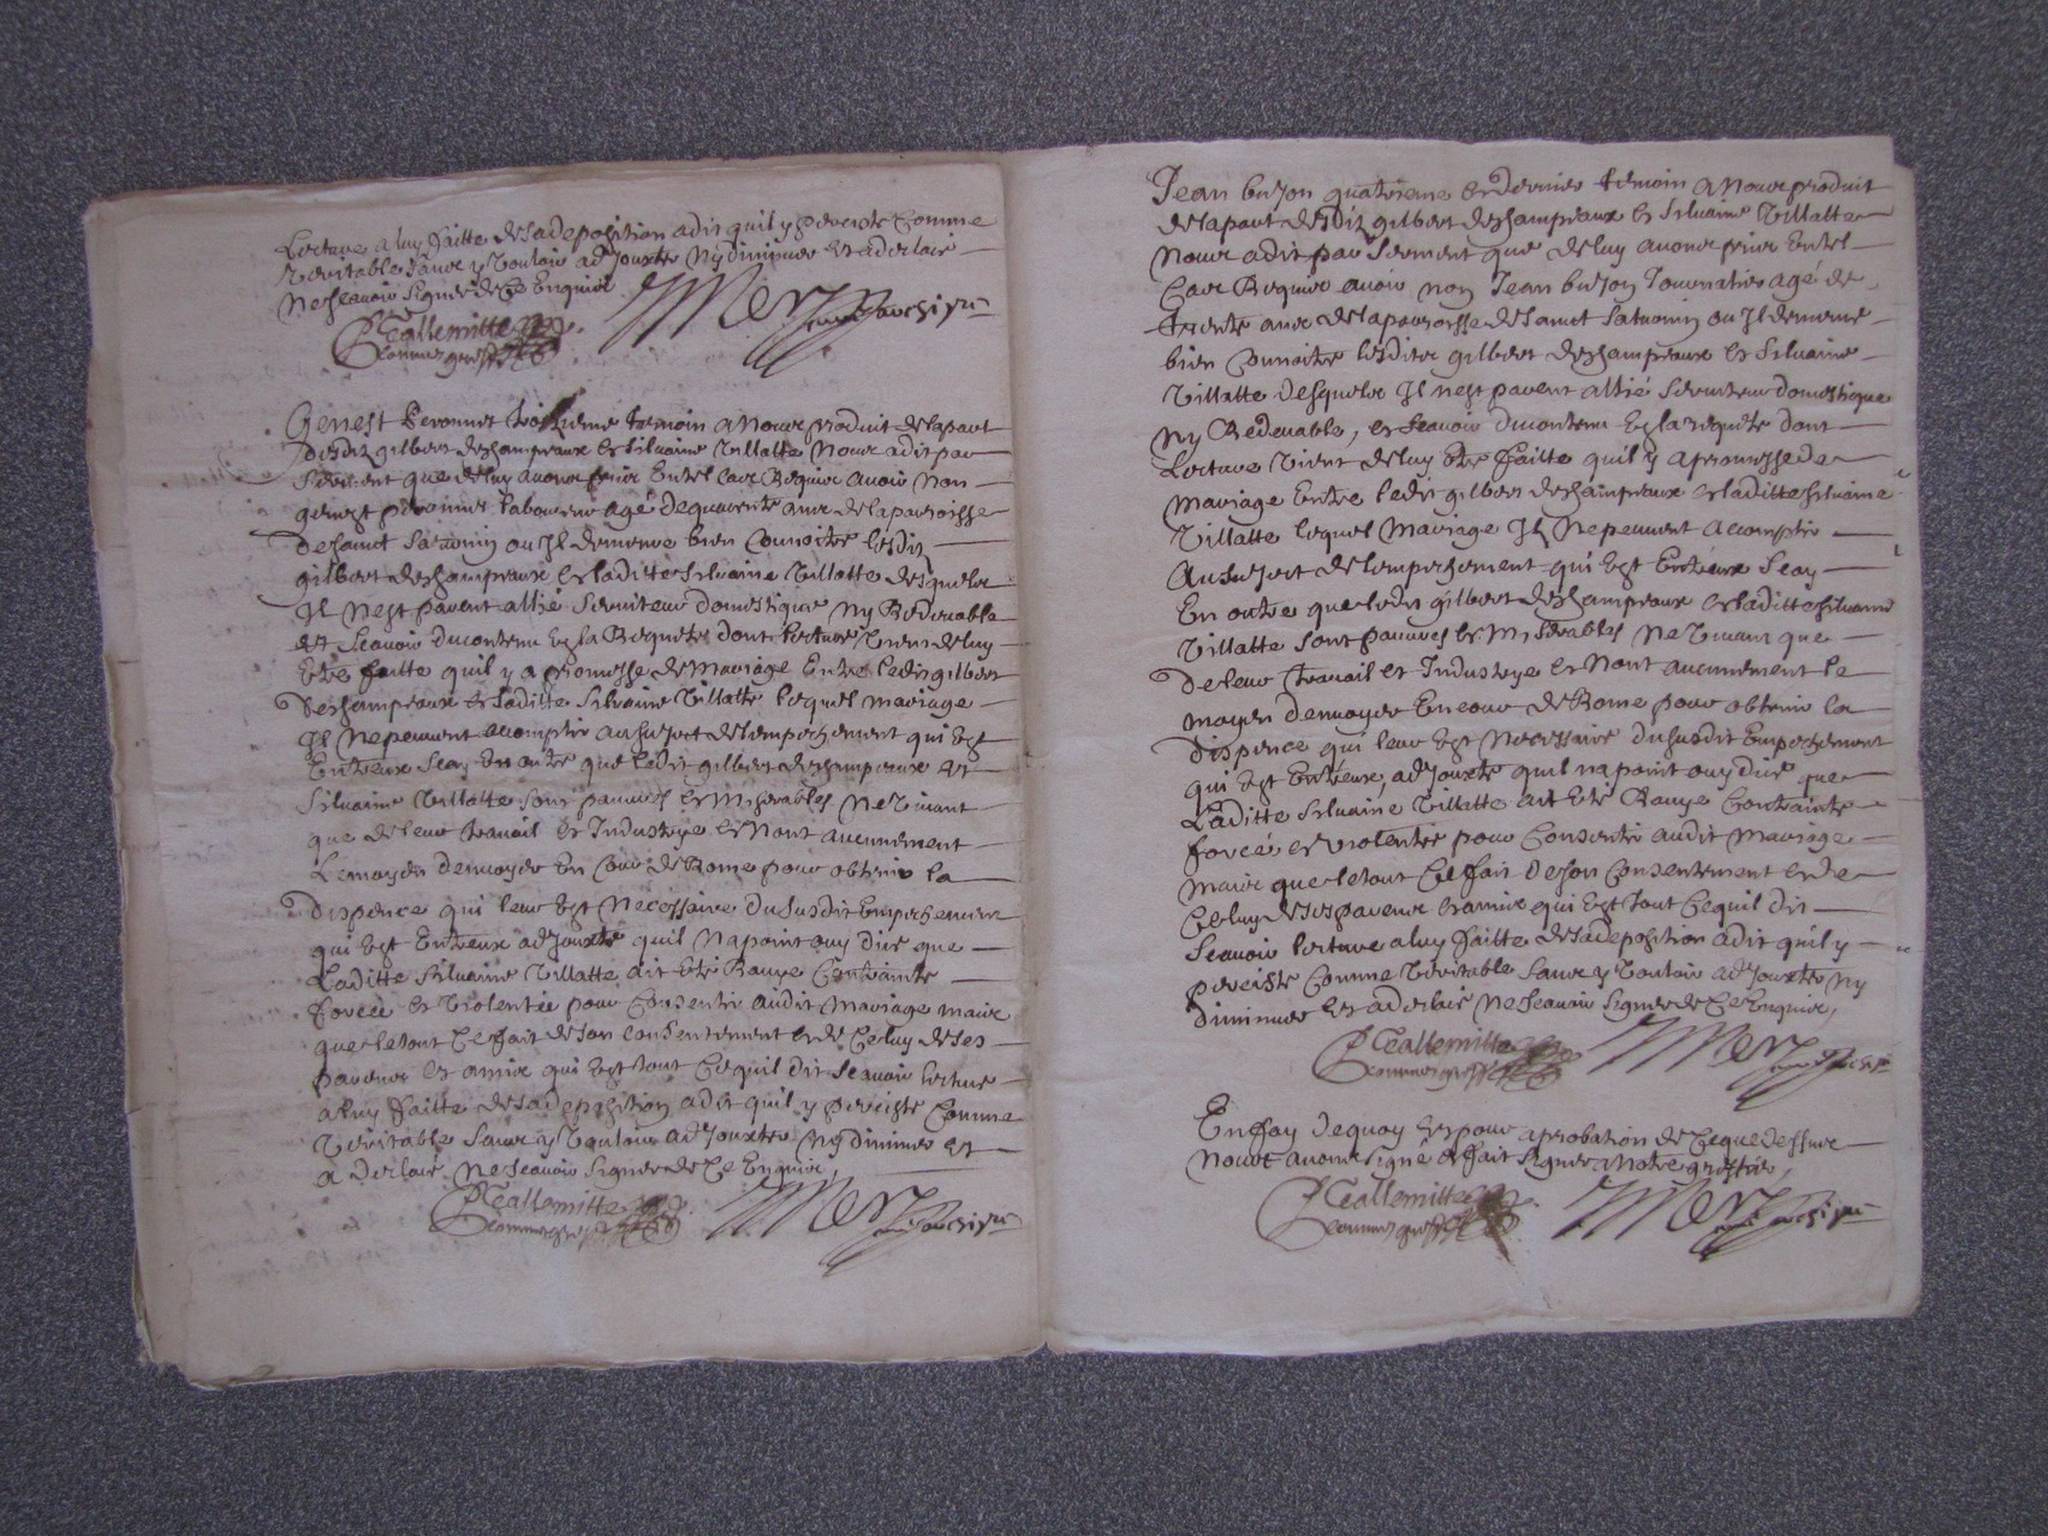 Lecture a luy faitte de sa deposition a dit quil y perciste Comme
Veritable sans y Vouloir adjouxter Ny diminuer et a declaré
Ne scauoir signer de Ce Enquis
Tallemitte
commis greffier
Genest Peronnet troisieme temoin a Nous produit de la part
desdiz gilbert deschampeaux et siluaine Villatte Nous a dit par
serment que de luy auons prins En tel Cas Requis auoir Nom
genest peronnet laboureur agé de quarente ans de la parroisse
de sainct saturnin ou Il demeure bien Connoitre lesdiz
gilbert deschampeaux et laditte siluaine Villatte desquels
Il Nest parent allié seruiteur domestique Ny Redeuable
et scauoir du contenu En la Requete dont lecture Vient de luy
Etre faitte quil y a promesse de mariage Entre ledit gilbert
deschampeaux et laditte siluaine Villatte lequel mariage
Il Ne peuuent acomplir au sujet de lempechement qui Est
Entreux scay En outre que ledit gilbert deschampeaux et
siluaine Villatte sont pauures et miserables Ne Viuant
que de leur trauail et Industrye et Nont aucunement
Le moyen denuoyer En Cour de Rome pour obtenir la
dispence qui leur Est Necessaire du susdit Empechement
qui Est Entreux adjouxte quil Na point ouy dire que
Laditte siluaine Villatte ait Eté Rauye Contrainte
forcée et Violentée pour Consentir audit mariage mais
que le tout Ce fait de son consentement et de Celuy de ses
parens et amis qui Est tout Ce quil dit scauoir lecture
a luy faitte de sa deposition a dit quil y perciste Comme
Veritable sans y Vouloir adjouxter Ny diminuer et
a declaré Ne scauoir signer de Ce Enquis,
Tallemitte
commis greffier
Jean bujon quatrieme et dernier temoin a Nous produit
de la part desdiz gilbert deschampeaux et siluaine Villatte
Nous a dit par serment que de luy auons prins En tel
Cas Requis auoir nom Jean bujon Journalier agé de
trente ans de la parroisse de sainct saturnin ou Il demeure
bien Connoitre lesdits gilbert deschampeaux et siluaine
Villatte desquels Il nest parent allié seruiteur domestique
ny Redeuable, et scauoir du contenu En la requete dont
Lecture Vient de luy Etre faitte quil y a promesse de
mariage Entre ledit gilbert deschampeaux et laditte siluaine
Villatte lequel mariage Il Ne peuuent acomplir
au sujet de lempechement qui Est Entreux scay
En outre que ledit gilbert deschampeaux et laditte siluaine
Villatte sont pauures et miserables Ne Viuans que
de leur trauail et Industrye et Nont aucunement le
moyen denuoyer En cour de Rome pour obtenir la
dispence qui leur Est Necessaire du susdit Empechement
qui Est Entreux, adjouxte quil na point ouy dire que
Laditte siluaine Villatte ait Eté Rauye Contrainte
forcée et violentée pour Consentir audit mariage
mais que le tout Ce fait de son Consentement et de
Celuy de ses parens et amis qui Est tout Ce quil dit
scauoir lecture a luy faitte de sa deposition a dit quil y
perciste Comme Veritable sans y Vouloir adjouxter Ny
diminuer et a declaré Ne scauoir signer de Ce Enquis,
Tallemitte
commis greffier
En foy dequoy et pour aprobation de Ce que dessus
Nous auons signé et fait signer a Notre greffier,
Tallemitte
commis greffier